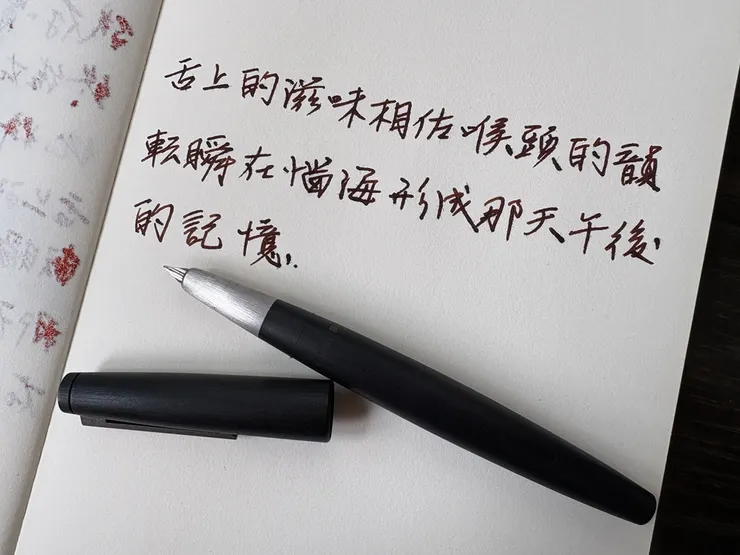 舌上的滋味相佐喉頭的韻
転瞬在惱海形成那天午後
的記憶.